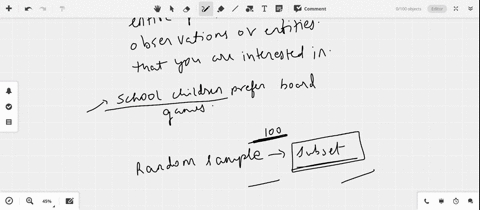 Comment
9/100 objects
Editor
observations or entities
that you are interested in.
school children prefer board
games.
100
Random sample → subset
49%